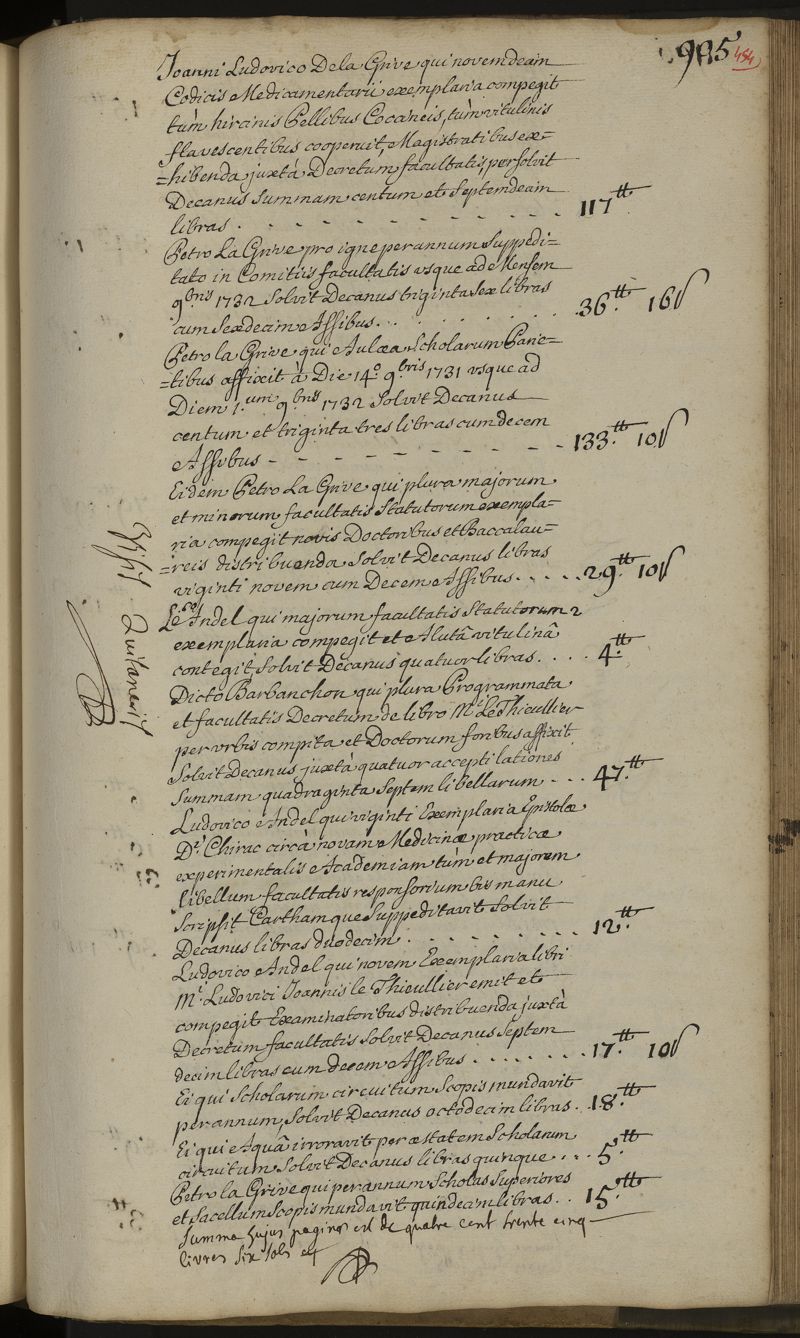 985 484
Joanni Ludovico De la Grive qui novemdecim
Codicis Medicamentarii exemplaria compegit
tùm hircinis Pellibus Cocancis, tùm vitulinis
flavescentibus cooperuit, Magistratibus ex=
=hibenda juxtà Decretum facultatis, persolvit
Decanus Summam centum et Septemdecim
libras . - - - - - - - - - 117.tt
Petro La Grive pro igne per annum Suppedi=
tato in Comitiis facultatis usque ad Mensem
9bris 1732 Solvit Decanus triginta Sex libras
cum Sexdecim Assibus. . . . . . . . 36.tt 16ſ
Petro la Grive qui Aulæa Scholarum Parie=
=tibus affixit à Die 14.º 9bris 1731 usque ad
Diem 1.um 9bris 1732 Solvit Decanus
centum et triginta tres libras cum decem
Assibus - - - - - - - - - 133.tt 10ſ
Eidem Petro La Grive qui plura majorum
et minorum facultatis Statutorum exempla=
ria compegit novis Doctoribus et Baccalau=
=reis distribuenda Solvit Decanus libras
viginti novem cum Decem Assibus. . . . . 29.tt 10ſ
Andel qui majorum facultatis Statutorum 2
exemplaria compegit et Alutâ vitulinâ
contegit, Solvit Decanus quatuor libras. . . . 4.tt
Dicto Barbanchon qui plura Programmata
et facultatis Decretum de libro M.i Le Thieullier
per urbis compita et Doctorum foribus affixit
Solvit Decanus juxtà quatuor accepti lationes
Summam quadraginta Septem libellarum - - - 47.tt
Ludovico Andel qui viginti Exemplaria Epistolæ
D.i Chirac circà novam Medicinæ practicæ
experimentalis Academiam tùm et majorem
libellum facultatis responsorium bis manu
Scripsit Carthamque Suppeditavit Solvit
Decanus libras duodecim . - - - - - - 12.tt
Ludovico Andel qui novem Exemplaria libri
M.i Ludovici Joannis le Thieullier emit et
compegit Examinatoribus distribuenda juxtà
Decretum facultatis Solvit Decanus Septem
decim libras cum decem Assibus . . . . . . . . 17.tt 10ſ
Ei qui Scholarum circuitum Scopis mundavit
per annum, Solvit Decanus octodecim libras. 18.tt
Ei qui Aquâ irroravit per æstatem Scholarum
circuitum Solvit Decanus libras quinque . . . 5.tt
Petro la Grive qui per annum Scholas Superiores
et Sacellum Scopis mundavit quindecim libras. . 15.tt
Summa hujus paginæ est de quatre cent trente cinq
livres six sols